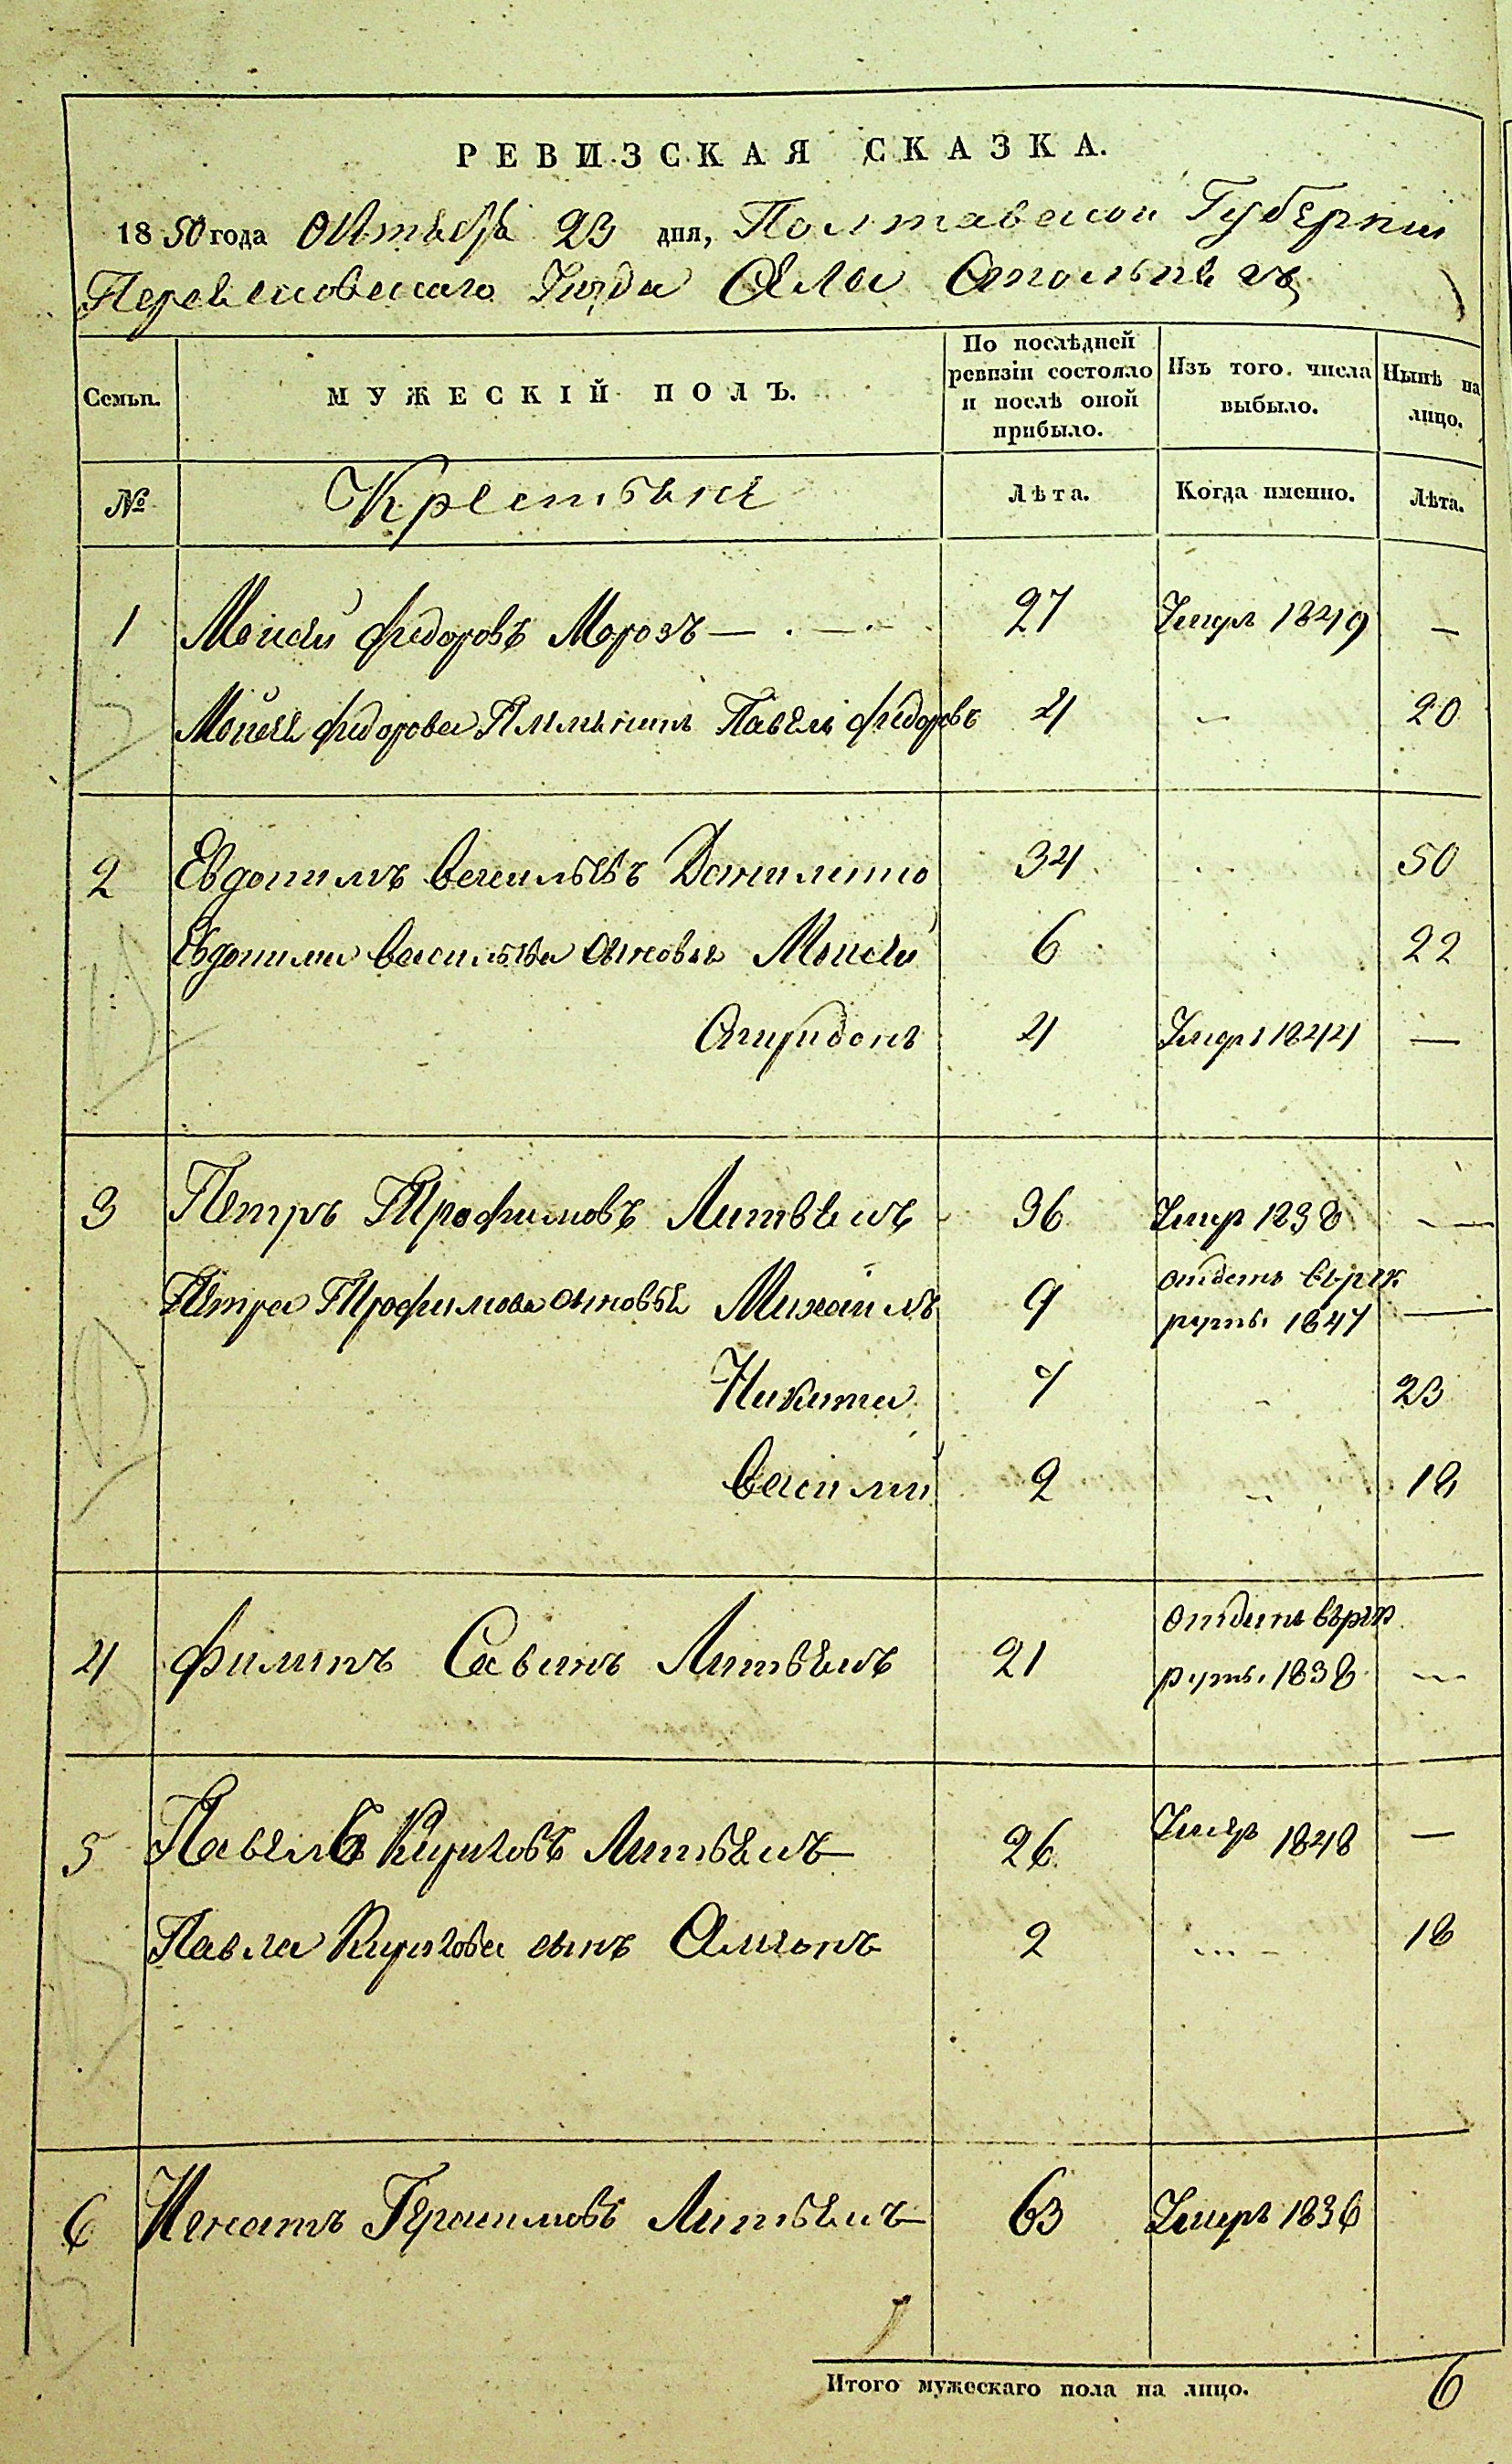 РЕВИЗСКАЯ СКАЗКА.
1850 года Октября 23 дня, Полтавской Губерніи
Переяславскаго Уѣзда Села Столпяги
Семьи. МУЖЕСКІЙ ПОЛЪ. По послѣдней ревизіи состояло и послѣ оной прибыло. Изъ того числа выбыло. Нынѣ на лицо.
№ Крестьяне Лѣта. Когда именно. Лѣта.
1 Моисей Федоровъ Морозъ — . — 27 Умеръ 1849 —
Моисея Федорова Племянникъ Павелъ Федоровъ 4 - 20
2 Евдокимъ Васильевъ Даниленко 34 50
Евдокима Васильева сыновья Моисей 6 22
Спиридонъ 4 Умеръ 1844 —
3 Петръ Трофимовъ Литвинъ 36 Умер 1838 —
Петра Трофимова сыновья Михаилъ 9 отданъ въ рек
руты 1847 —
Никита 7 - 23
Василий 2 - 18
4 Филипъ Савинъ Литвинъ 21 отданъ въ рек
руты 1838 —
5 Павелъ Литвинъ 26 Умеръ 1848 —
Павла сынъ 2 - 18
6 Игнатъ Герасимовъ Литвинъ 63 Умеръ 1836
Итого мужескаго пола на лицо. 6